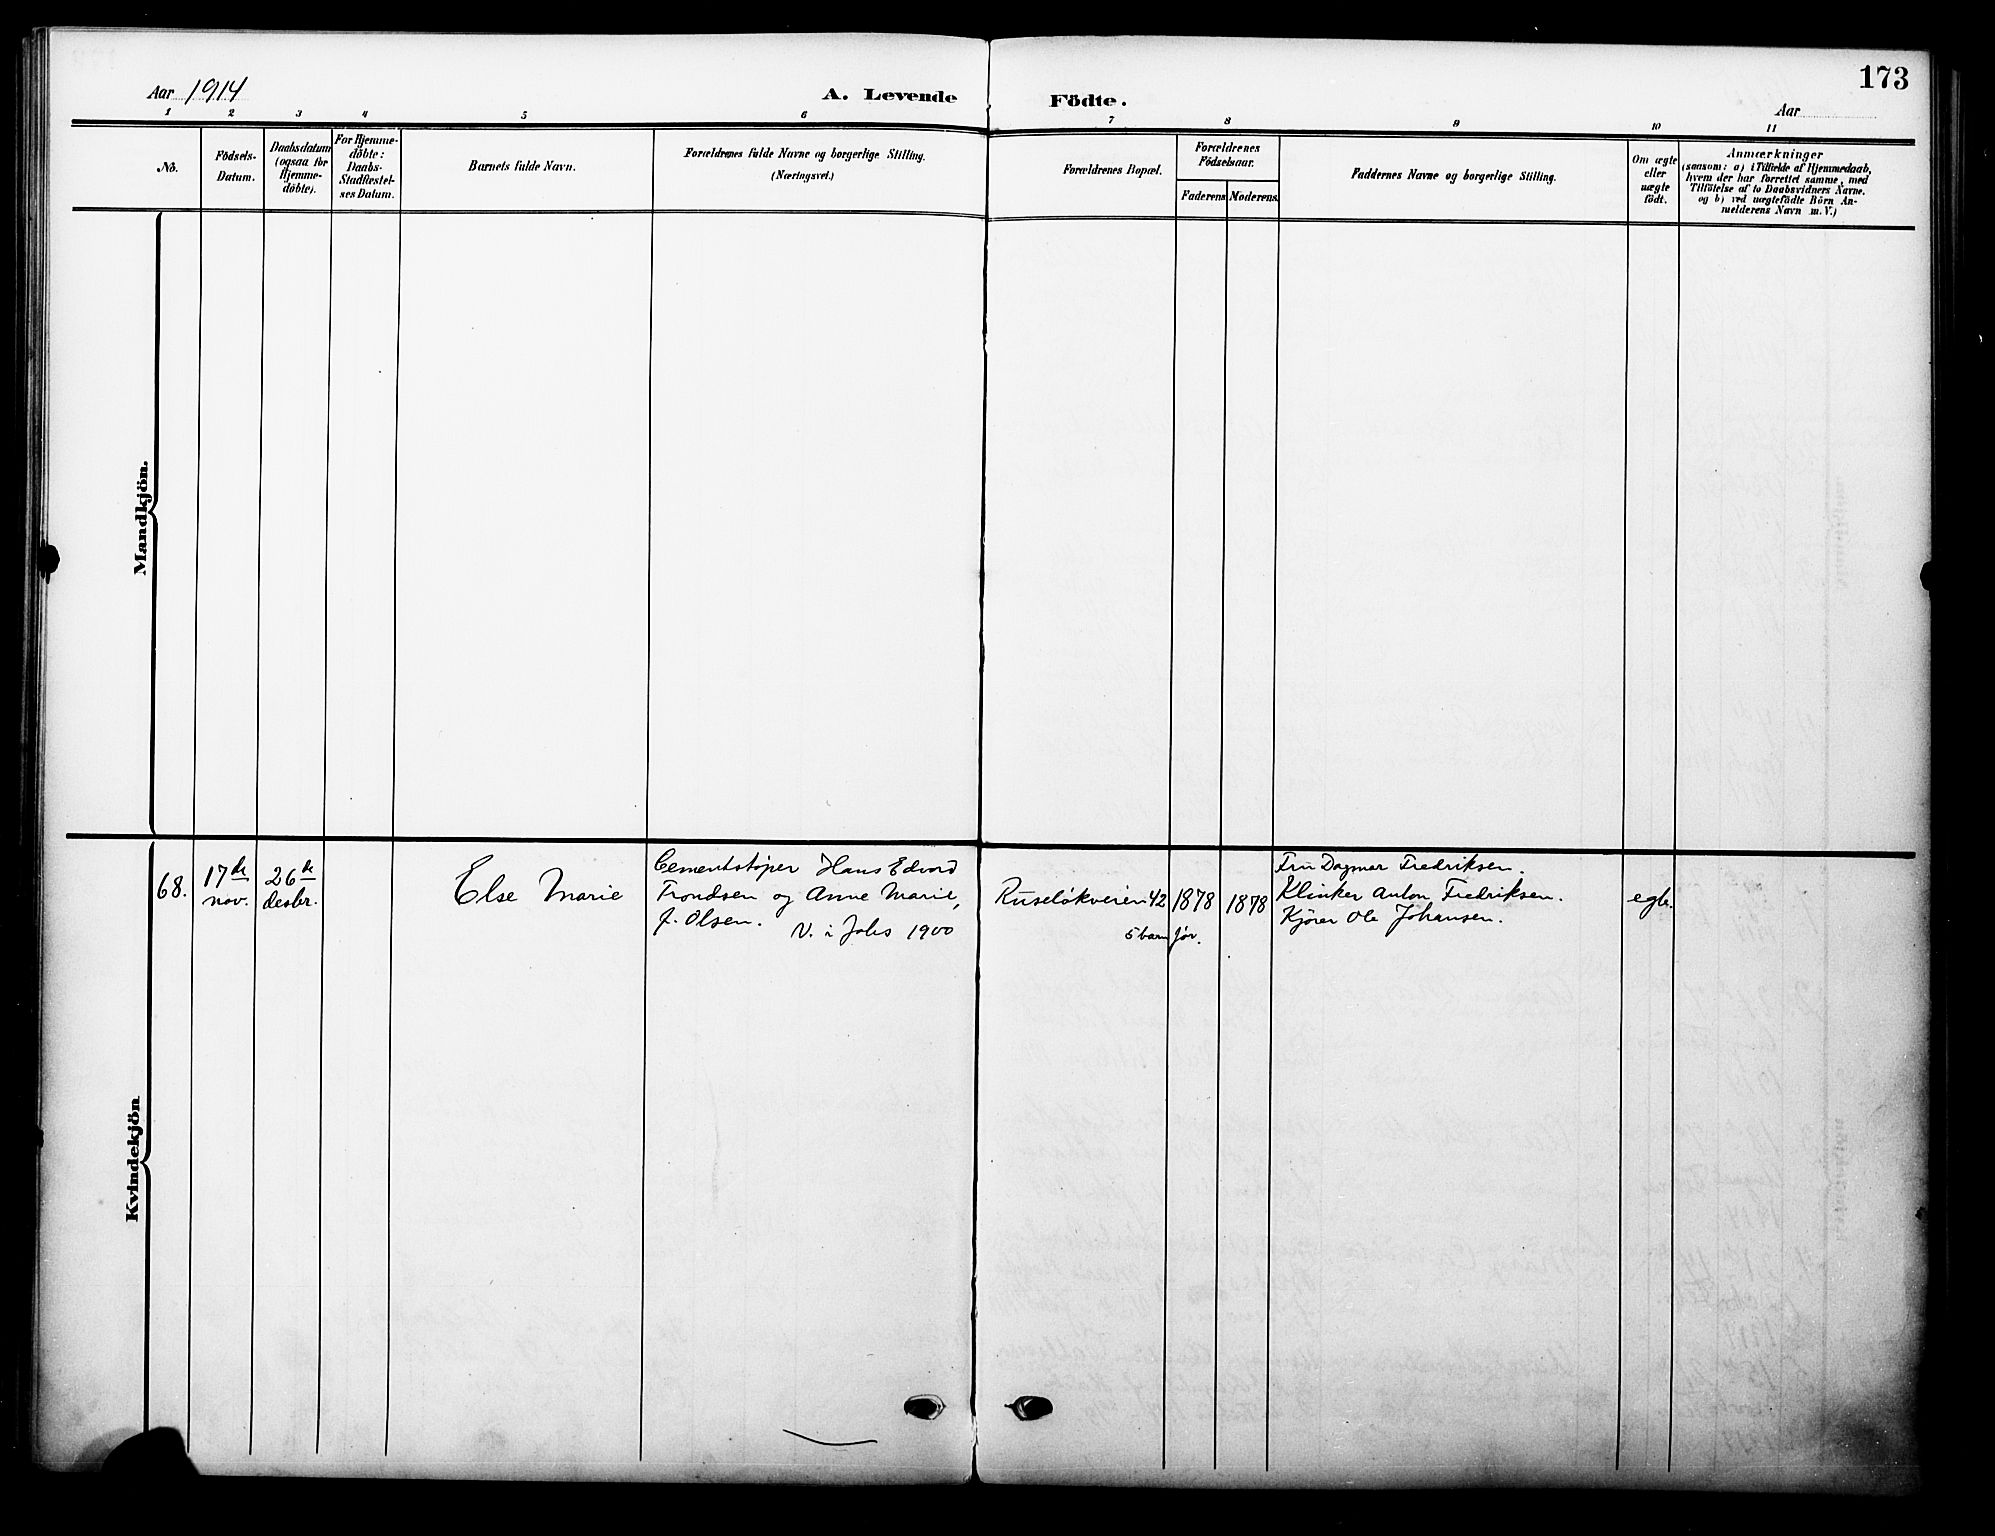 173
Aar 1914
A. Levende Födte.
Aar
1 2 3 4 5 6 7 8 9 10 11
No.
Födsels-
Datum.
Daabsdatum
(ogsaa for
Hjemme-
döbte).
For Hjemme-
döbte:
Daabs-
Stadfæstel-
ses Datum.
Barnets fulde Navn.
Forældrenes fulde Navne og borgerlige Stilling.
(Næringsvei.)
Forældrenes Bopæl.
Forældrenes
Födselsaar.
Faderens Moderens.
Faddernes Navne og borgerlige Stilling.
Om ægte
eller
uægte
födt.
Anmærkninger
(saasom: a) i Tilfælde af Hjemmedaab,
hvem der har forrettet samme, med
Tilföielse af to Daabsvidners Navne.
og b) ved uægtefödte Börn An-
melderens Navn m. V.)
Mandkjön.
Kvindekjön
68.
17de
nov.
26de
desbr.
Else Marie
Cementstøper Hans Edvard
Trondsen og Anne Marie,
f. Olsen.
V. i Jobs 1900
Ruseløkveien 42
5 barn før.
1878
1878
Fru Dagmar Fredriksen.
Klinker Anton Fredriksen.
Kjører Ole Johansen.
egte.